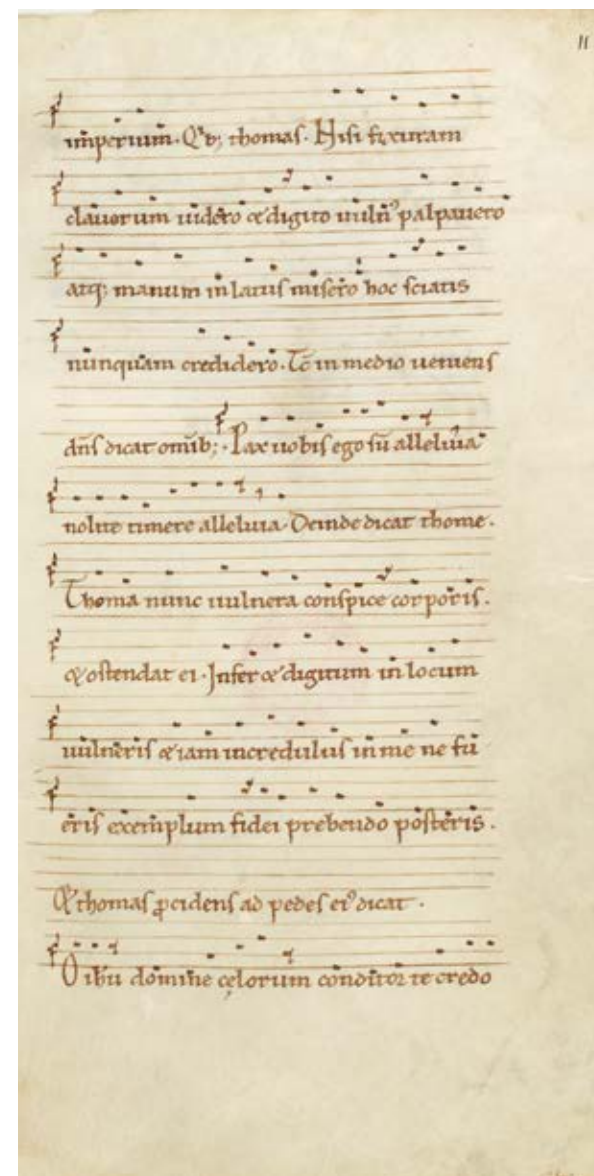 11
im̄perium. Qᵈ; thomas. Nisi fixuram
clauorum uidēro & digito uuln̄ꝰ palpauero
atq; manum in latus misero hoc sciatis
nunquam credidero. Tc̄ in medio ueniens
dn̄s dicat omīb; . Pax uobis ego sū alleluia
nolite timere alleluia. Deinde dicat thome.
Thoma nunc uulnera conspice corporis.
& ostendat ei. Infer & digitum in locum
uulneris & iam incredulus in me ne fu
eris exemplum fidei prebendo posteris.
& thomas ꝓcidens ad pedes eiꝰ dicat.
O ihū domine cęlorum conditor te credo